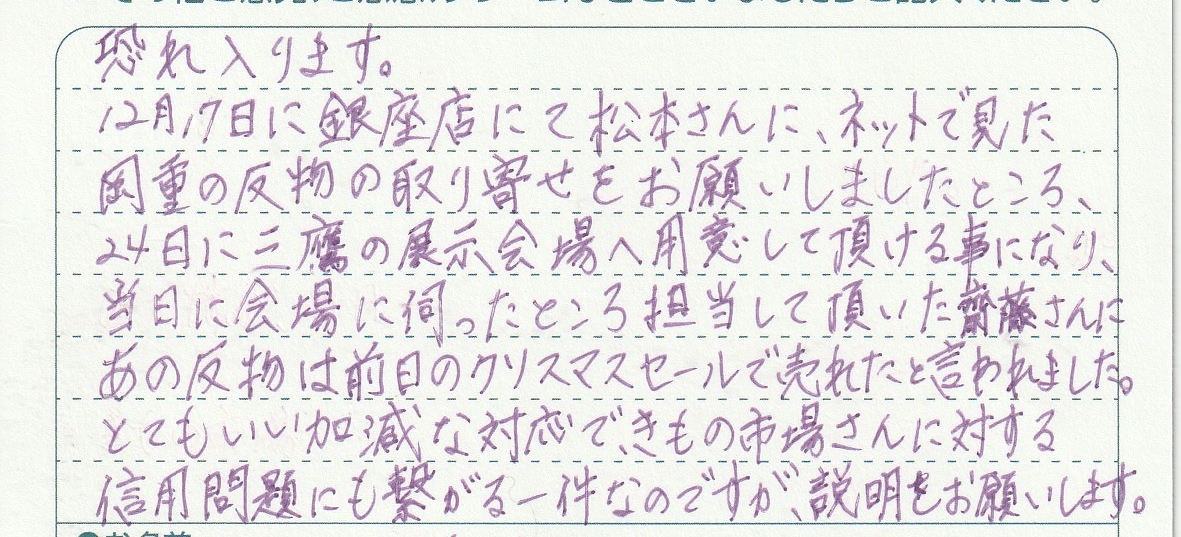 恐れ入ります。
12月17日に銀座店にて松本さんに、ネットで見た
岡重の反物の取り寄せをお願いしましたところ、
24日に三鷹の展示会場へ用意して頂ける事になり、
当日に会場に伺ったところ担当して頂いた齋藤さんに
あの反物は前日のクリスマスセールで売れたと言われました。
とてもいい加減な対応で、きもの市場さんに対する
信用問題にも繋がる一件なのですが、説明をお願いします。